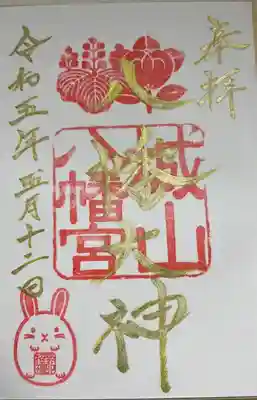 奉拝
八幡大神
城山
八幡宮
令和五年五月十二日